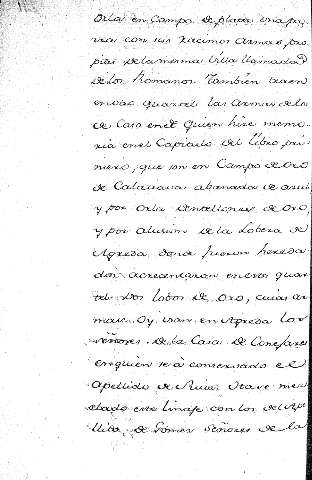 orla en Campo de plata una par
rra con sus racimos armas, pro
pias de la misma villa llamada
de los Romanos. Tambien traen
en otro quartel las Armas de la
de Caso en el quien hize memo
ria en el Capitulo del libro pri
mero, que son en Campo de oro
de Calatrava
y por orla de oro,
y por alusion de la Lobera de
Agreda donde fueron hereda
dos acrecentaron en otro quar
tel dos lobos de oro, cuias ar
mas oy usan en Agreda los
señores de la Casa de
en quien se à conservado el
Apellido de
clado este linaje con los de
de Gomez señores de la